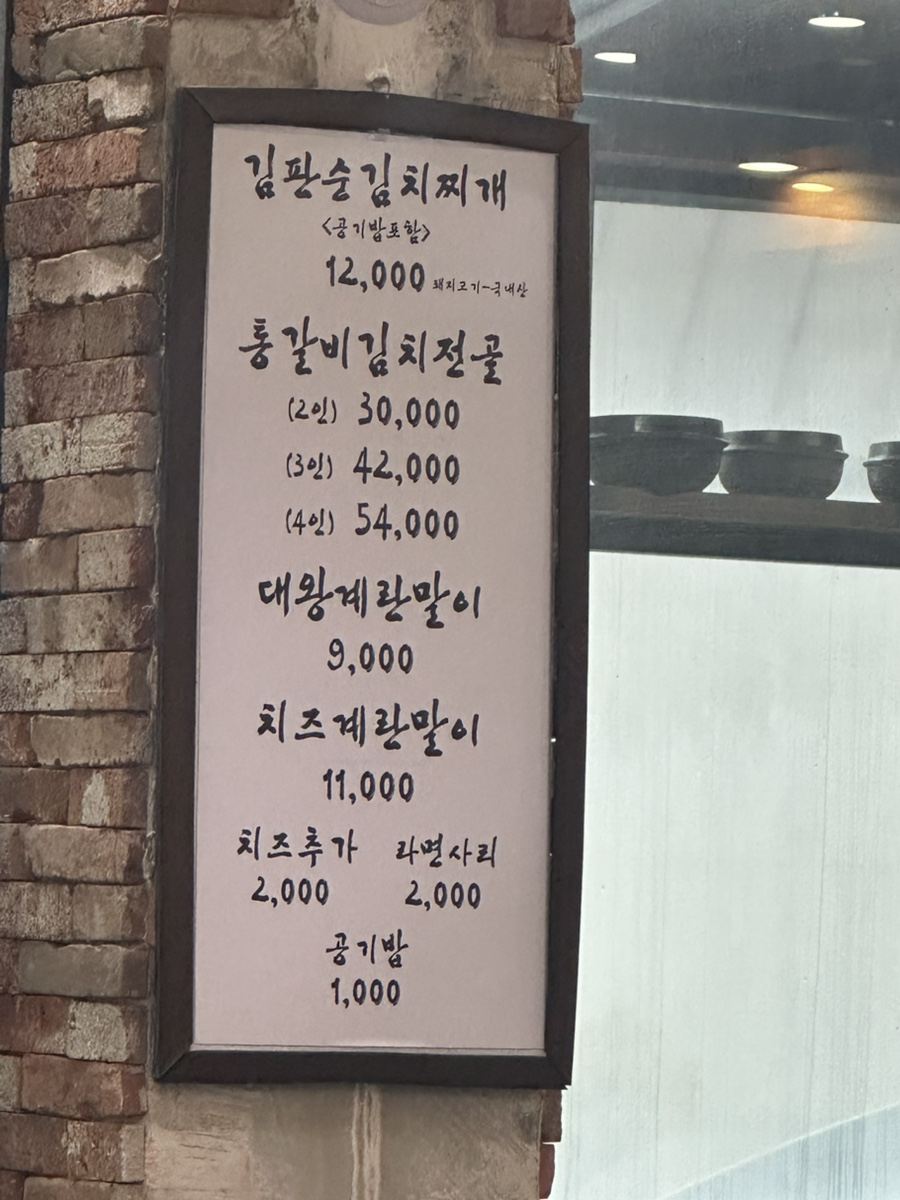 김판순김치찌개
<공기밥포함>
12,000 돼지고기-국내산
통갈비김치전골
(2인) 30,000
(3인) 42,000
(4인) 54,000
대왕계란말이
9,000
치즈계란말이
11,000
치즈추가 라면사리
2,000 2,000
공기밥
1,000